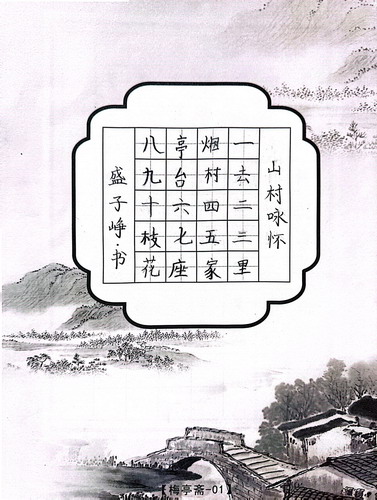 山村咏怀
一去二三里
烟村四五家
亭台六七座
八九十枝花
盛子峥·书
【梅亭斋-01】